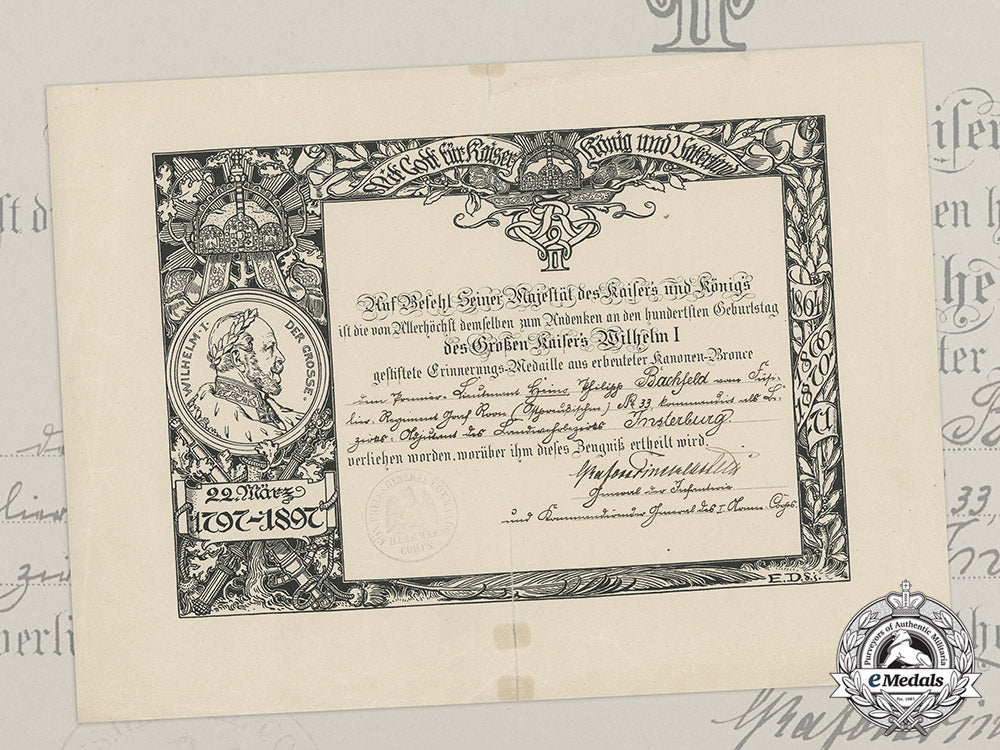 Mit Gott für Kaiser König und Vaterland
WILHELM·I· DER GROSSE·
22. März
1797–1897
1864
1866
1870
u.
Auf Befehl Seiner Majestät des Kaisers und Königs
ist die von Allerhöchst demselben zum Andenken an den hundertsten Geburtstag
des Großen Kaisers Wilhelm I
gestiftete Erinnerungs-Medaille aus erbeuteter Kanonen-Bronce
dem Premier-Lieutenant Heino Philipp Bachfeld vom Füsi-
lier-Regiment Graf Roon (Ostpreußischen) No 33, kommandirt als Be-
zirks-Adjutant des Landwehrbezirks Insterburg.
verliehen worden, worüber ihm dieses Zeugniß ertheilt wird
General der Infanterie
und Kommandirender General des I. Armee-Corps.
CORPS
E.D.
Purveyors of Authentic Militaria
eMedals
Est. 1985